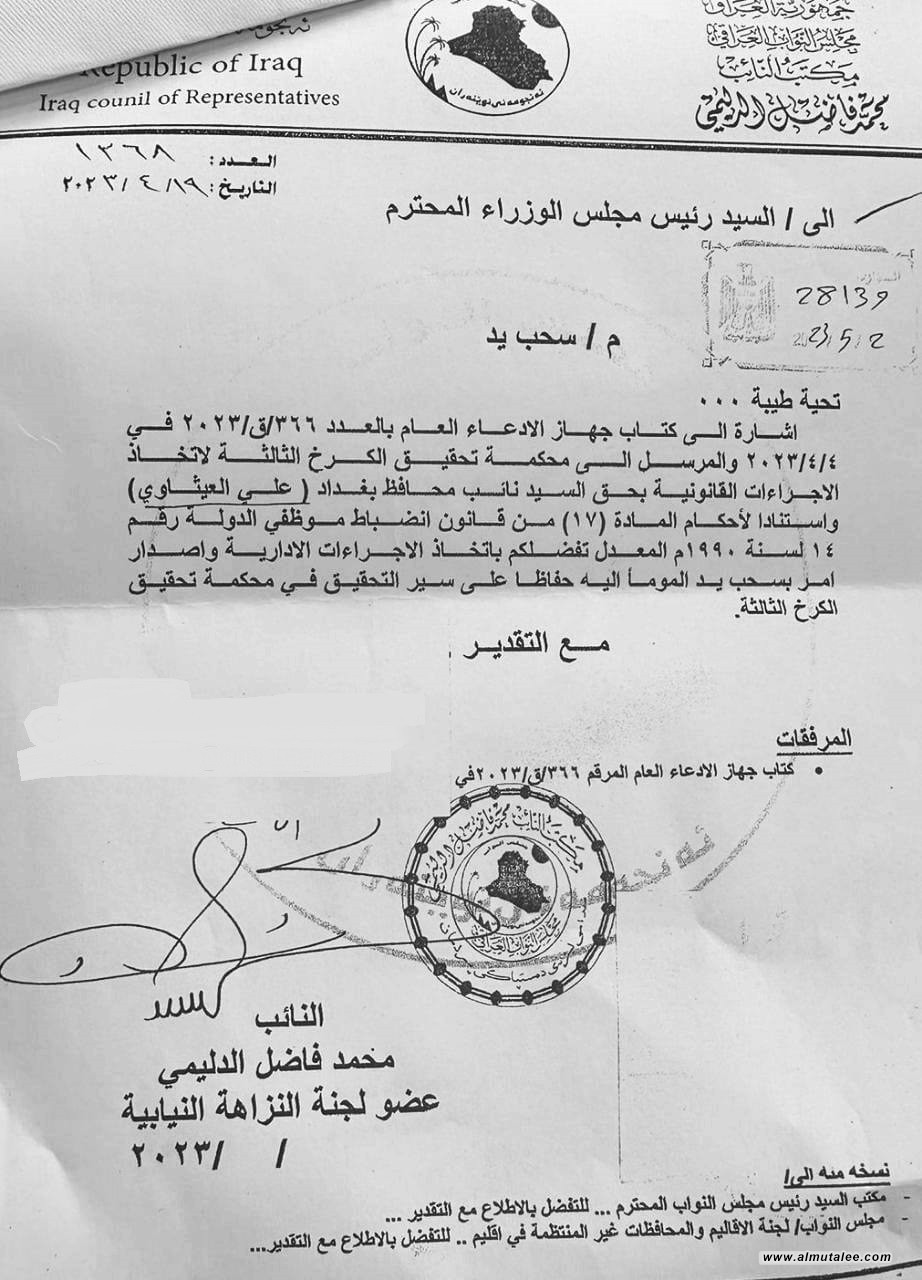 جمهورية العراق
مجلس النواب العراقي
مكتب النائب
محمد فاضل الدليمي
Republic of Iraq
Iraq counil of Representatives
ئه نجومه نی نوێنه ران
العدد: ١٣٦٨
التاريخ: ٢٠٢٣/٤/١٩
الى / السيد رئيس مجلس الوزراء المحترم
28139
2023/5/2
م / سحب يد
تحية طيبة ...
اشارة الى كتاب جهاز الادعاء العام بالعدد ٣٦٦/ق/٢٠٢٣ في
٢٠٢٣/٤/٤ والمرسل الى محكمة تحقيق الكرخ الثالثة لاتخاذ
الاجراءات القانونية بحق السيد نائب محافظ بغداد ( علي العيثاوي)
واستنادا لأحكام المادة (١٧) من قانون انضباط موظفي الدولة رقم
١٤ لسنة ١٩٩٠م المعدل تفضلكم باتخاذ الاجراءات الادارية واصدار
امر بسحب يد المومأ اليه حفاظا على سير التحقيق في محكمة تحقيق
الكرخ الثالثة.
مع التقدير
المرفقات
• كتاب جهاز الادعاء العام المرقم ٣٦٦/ق/٢٠٢٣في
مكتب النائب محمد فاضل الدليمي
مجلس النواب العراقي
النائب
محمد فاضل الدليمي
عضو لجنة النزاهة النيابية
/ /٢٠٢٣
نسخه منه الى/
- مكتب السيد رئيس مجلس النواب المحترم ... للتفضل بالاطلاع مع التقدير ...
- مجلس النواب/ لجنة الاقاليم والمحافظات غير المنتظمة في اقليم .. للتفضل بالاطلاع مع التقدير...
www.almutalee.com